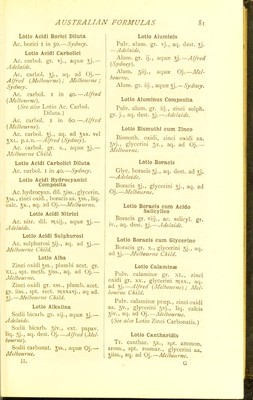 AUSTRALIAN FORMULAS 81
Lotio Acidi Borici Diluta
Ac. borici 1 in 50.—Sydney.
Lotio Acidi Carbolici
Ac. carbol. gr. vj., aquæ ʒj.—
Adelaide.
Ac. carbol. ʒj., aq. ad Oj.—
Alfred (Melbourne); Melbourne;
Sydney.
Ac. carbol. 1 in 40.—Alfred
(Melbourne).
(See also Lotio Ac. Carbol.
Diluta.)
Ac. carbol. 1 in 60.—Alfred
(Melbourne).
Ac. carbol. ʒj., aq. ad ʒxx. vel
ʒxl., p.r.n.—Alfred (Sydney).
Ac. carbol. gr. x., aquæ ʒj.—
Melbourne Child.
Lotio Acidi Carbolici Diluta
Ac. carbol. 1 in 40.—Sydney.
Lotio Acidi Hydrocyanici
Composita
Ac. hydrocyan. dil. ʒiss., glycerin.
ʒss., zinci oxid., boracis aa. ʒss., liq.
calc. ʒx., aq. ad Oj.—Melbourne.
Lotio Acidi Nitrici
Ac. nitr. dil. ♏xij., aquæ ʒj.—
Adelaide.
Lotio Acidi Sulphurosi
Ac. sulphurosi ʒij., aq. ad ʒj.—
Melbourne Child.
Lotio Alba
Zinci oxidi ʒss., plumbi acet. gr.
xl., spt. meth. ʒiss., aq. ad Oj.—
Melbourne.
Zinci oxidi gr. xss., plumb. acet.
gr. iiss., spt. rect. ♏xxxvj., aq. ad.
ʒj.—Melbourne Child.
Lotio Alkalina
Sodii bicarb. gr. iij., aquæ ʒj.—
Adelaide.
Sodii bicarb. ʒiv., ext. papav.
liq. ʒj., aq. dest. Oj.—Alfred (Melbourne).
Sodii carbonat. ʒss., aquæ Oj.—
Melbourne.
II.
Lotio Aluminis
Pulv. alum. gr. vj., aq. dest. ʒj.
—Adelaide.
Alum. gr. ij., aquæ ʒj.—Alfred
(Sydney).
Alum. ʒiij., aquæ Oj.—Melbourne.
Alum. gr. iij., aquæ ʒj.—Sydney.
Lotio Aluminus Composita
Pulv. alum. gr. iij., zinci sulph.
gr. j., aq. dest. ʒj.—Adelaide.
Lotio Bismuthi cum Zinco
Bismuth. oxidi, zinci oxidi aa.
ʒij., glycerini ʒx., aq. ad Oj.—
Melbourne.
Lotio Boracis
Glyc. boracis ʒj., aq. dest. ad ʒj.
—Adelaide.
Boracis ʒj., glycerini ʒj., aq. ad
Oj.—Melbourne.
Lotio Boracis cum Acido
Salicylico
Boracis gr. viij., ac. salicyl. gr.
iv., aq. dest. ʒj.—Adelaide.
Lotio Boracis cum Glycerino
Boracis gr. x., glycerini ʒj., aq.
ad ʒj.—Melbourne Child.
Lotio Calaminæ
Pulv. calaminæ gr. xl., zinci
oxidi gr. xx., glycerini ♏xx., aq.
ad ʒj.—Alfred (Melbourne); Melbourne Child.
Pulv. calaminæ præp., zinci oxidi
aa. ʒiv., glycerini ʒvj., liq. calcis
ʒiv., aq. ad Oj.—Melbourne.
(See also Lotio Zinci Carbonatis.)
Lotio Cantharidis
Tr. canthar. ʒx., spt. ammon.
arom., spt. rosmar., glycerini aa.
ʒiiss., aq. ad Oj.—Melbourne.
G